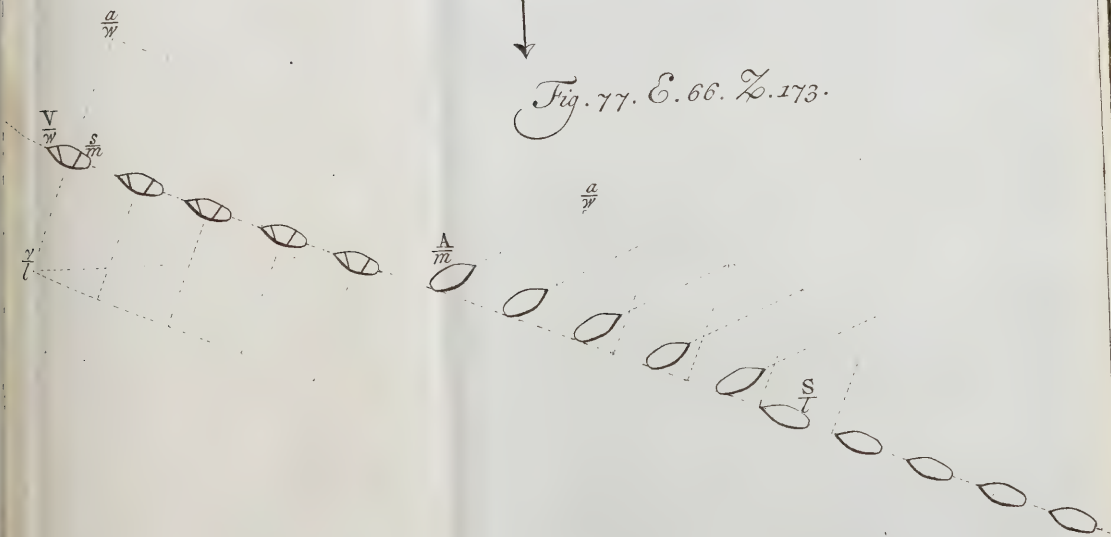 a/w
Fig. 77. E. 66. Z. 173.
V/w s/m
a/w
A/m
γ/l
S/l